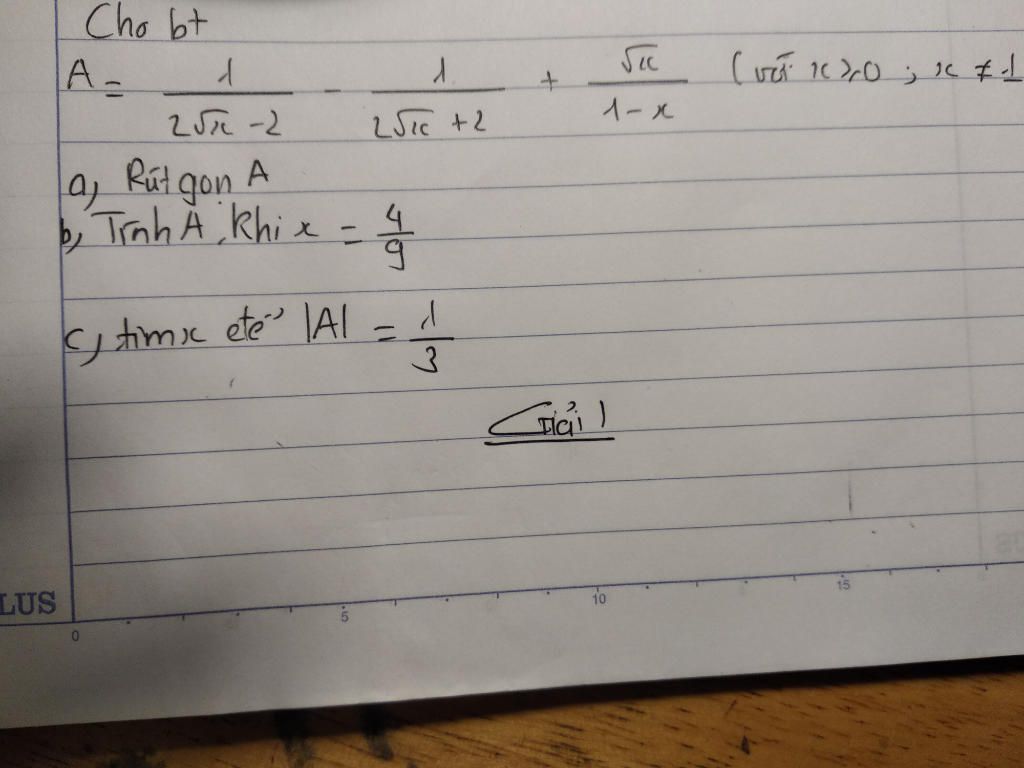 Cho bt
A = 1/(2√x - 2) - 1/(2√x + 2) + √x/(1 - x) (với x ≥ 0 ; x ≠ 1
a, Rút gọn A
b, Tính A khi x = 4/9
c, tìm x để |A| = 1/3
Giải
LUS
0 5 10 15